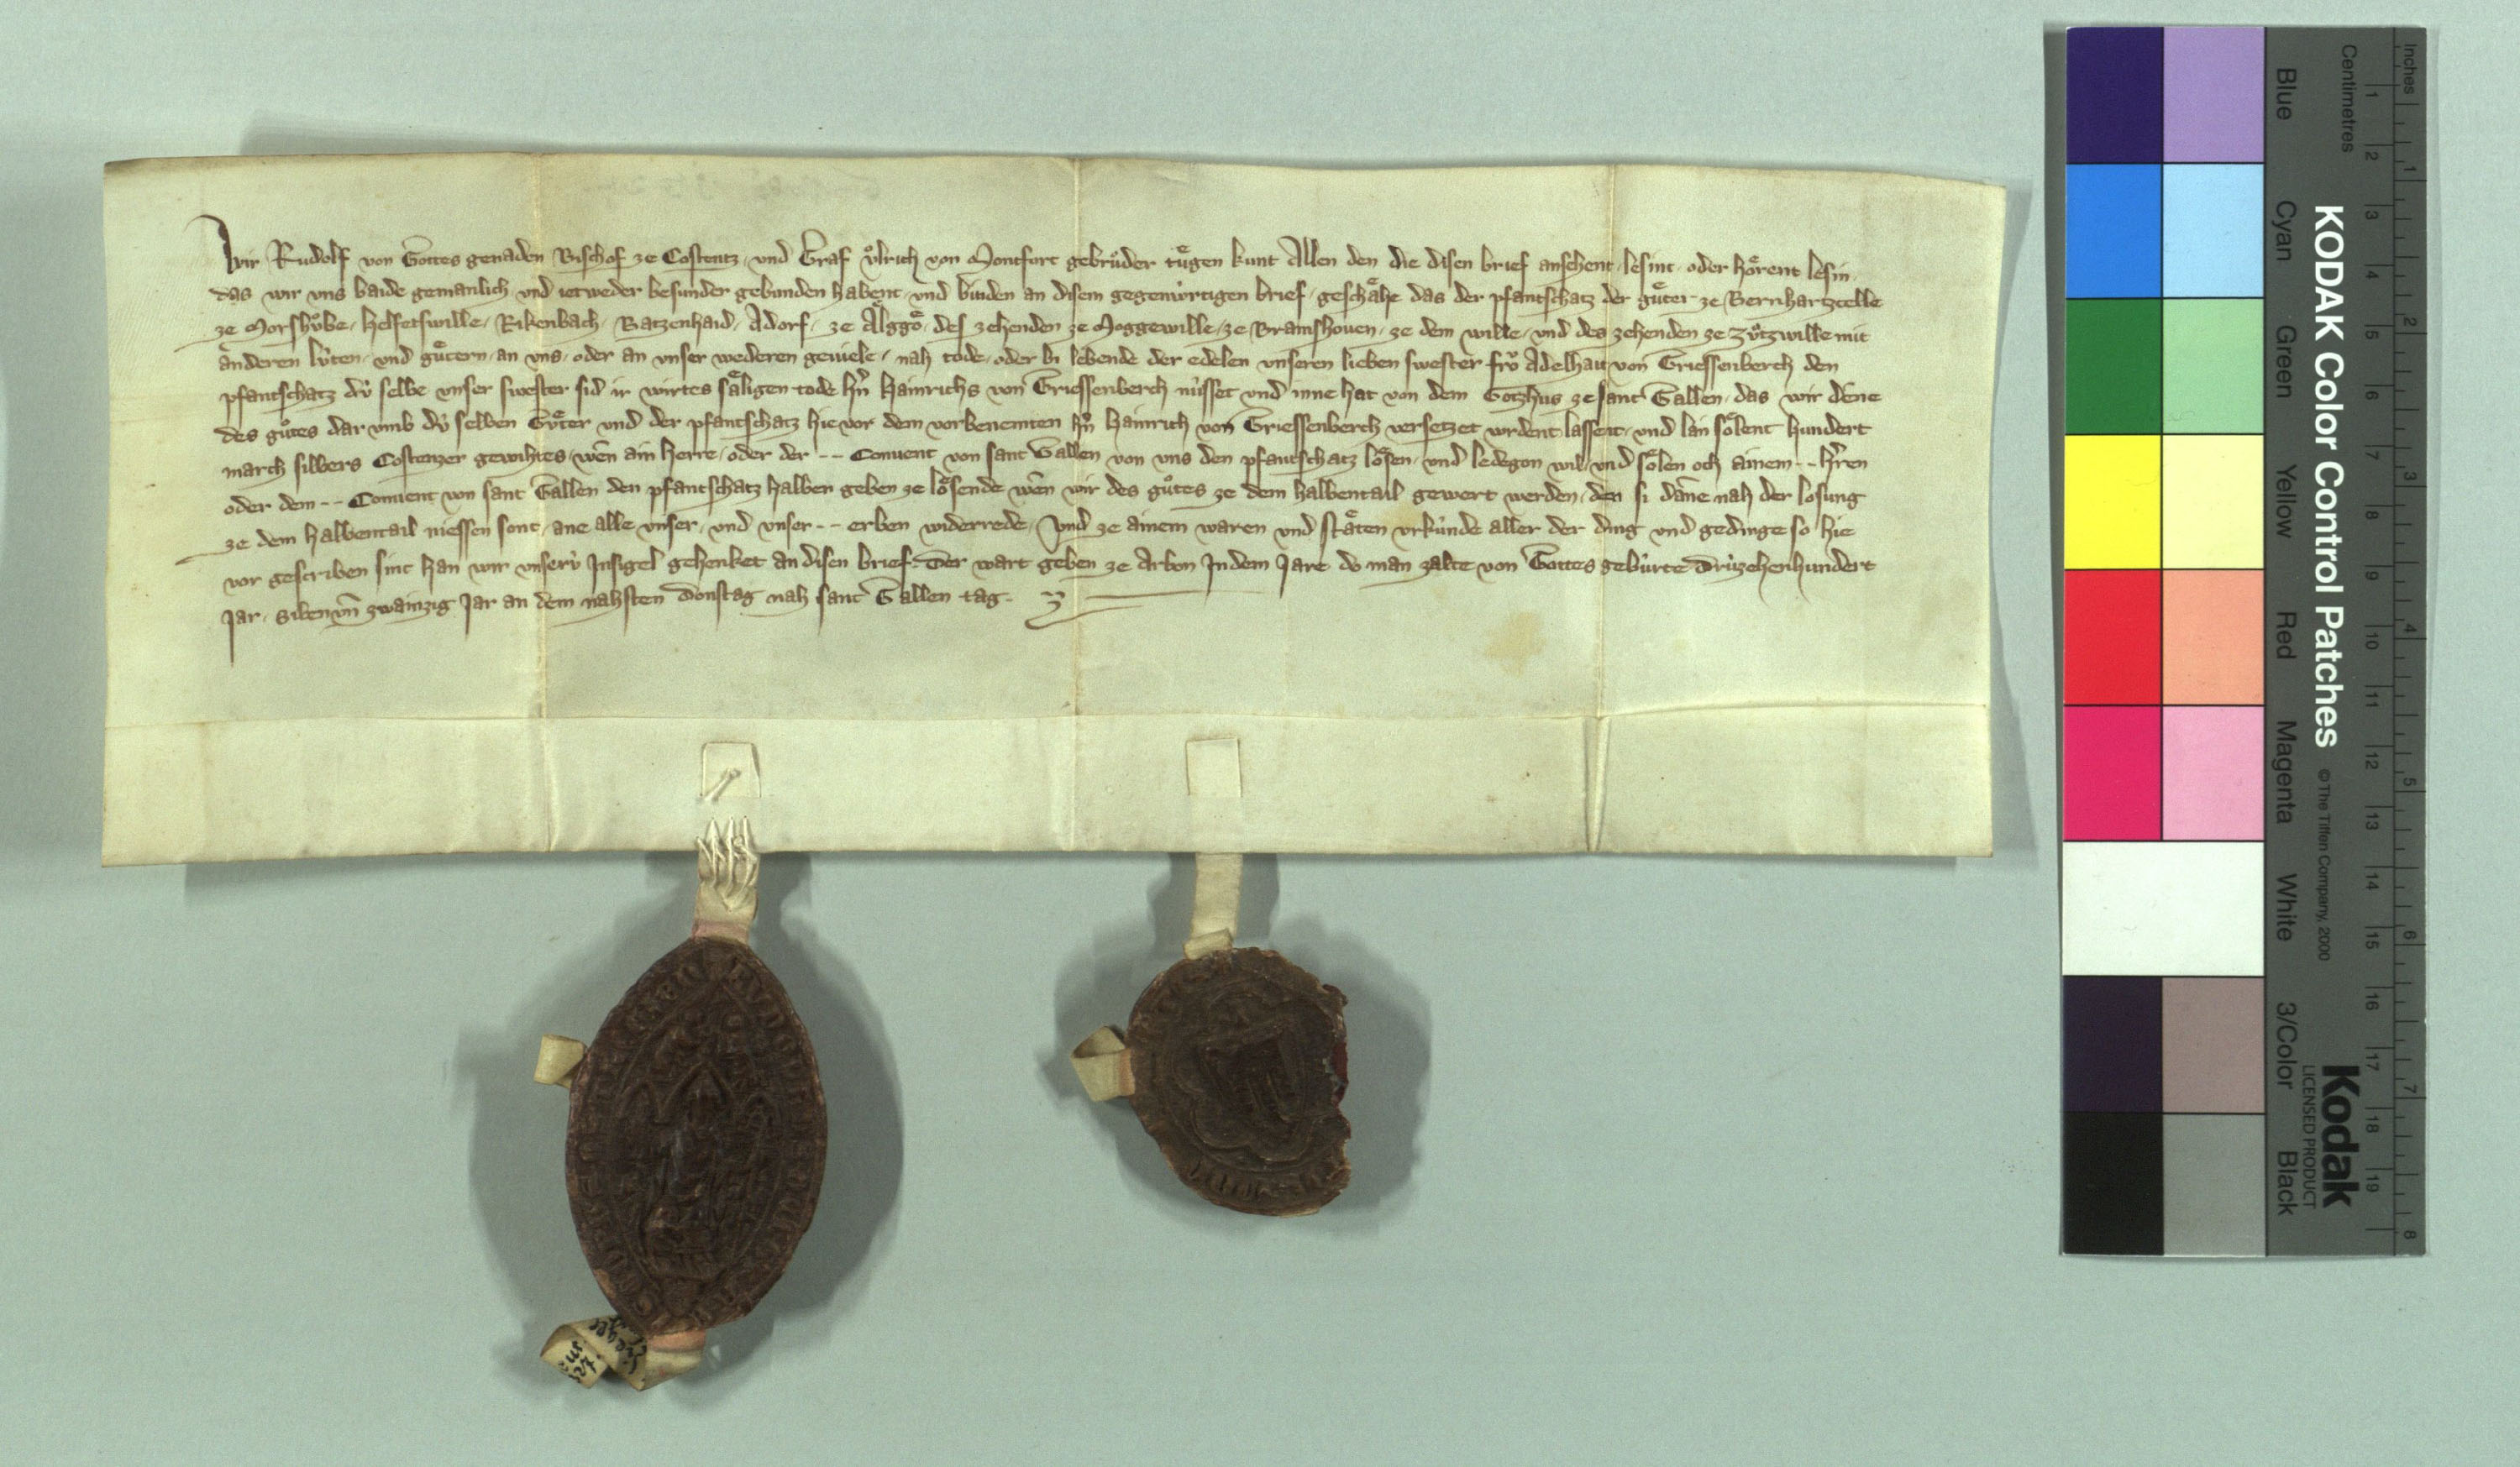 Wir Rudolf von Gottes genaden Bischof ze Costentz · vnd Graf vͦlrich von Montfort gebruͤder tuͤgen kunt Allen den die disen brief ansehent · lesint · oder hoͤrent lesin ·
das wir vns baide gemainlich vnd ietweder besunder gebunden habent · vnd binden an disem gegenwirtigen brief · geschaͤhe das der pfantschatz der guͤter ze Bernhartzcelle
ze Morshuͦbe · Helfetswille · Rikenbach · Batzenhaid · Adorf · ze Alggoͤ · des zehenden ze Moggewille · ze Bramshouen · ze dem wille · vnd des zehenden ze Zuͦtzwille mit
anderen luten · vnd guͤtern · an vns · oder an vnser wederen geuiele · nah tode · oder bi lebende der edelen vnseren lieben swester froͮ Adelhait von Griessenberch den
pfantschatz du̍ selbe vnser swester sid ir wirtes saͤligen tode hn̄ Hainrichs von Griessenberch nu̍sset vnd inne hat von dem Gotzhus ze sant Gallen · das wir dēne
des guͦtes dar vmb du̍ selben Guͤter vnd der pfantschatz hie vor dem vorbenemten hn̄ Hainrich von Griessenberch versetzet wrdent lassent · vnd lan soͤlent hundert
march silbers Costenzer gewihtes · wēn ain herre · oder der -- Conuent von sant Gallen von vns den pfantschatz loͤsen · vnd ledegon wil · vnd soͤlen och ainem -- hr̄ren
oder dem -- Conuent von sant Gallen den pfantschatz halben geben ze loͤsende wēn wir des guͦtes ze dem halbentail gewert werden · den si dāne nah der losung
ze dem halbentail niessen sont · ane alle vnser · vnd vnser -- erben widerrede · Vnd ze ainem waren vnd staͤten vrku̍nde aller der ding vnd gedinge so hie
vor gescriben sint han wir vnseru̍ Insigel gehenket an disen brief · Der wart geben ze Arbon In dem Jare do man zalte von Gottes gebu̍rte Dru̍zehenhundert
Jar · Siben vn̄ zwainzig Jar an dem nahsten Donstag nah sant Gallen tag ·
KODAK Color Control Patches
© The Tiffen Company, 2000
Kodak
LICENSED PRODUCT
Blue Cyan Green Yellow Red Magenta White 3/Color Black
Centimetres 1 2 3 4 5 6 7 8 9 10 11 12 13 14 15 16 17 18 19
Inches 1 2 3 4 5 6 7 8